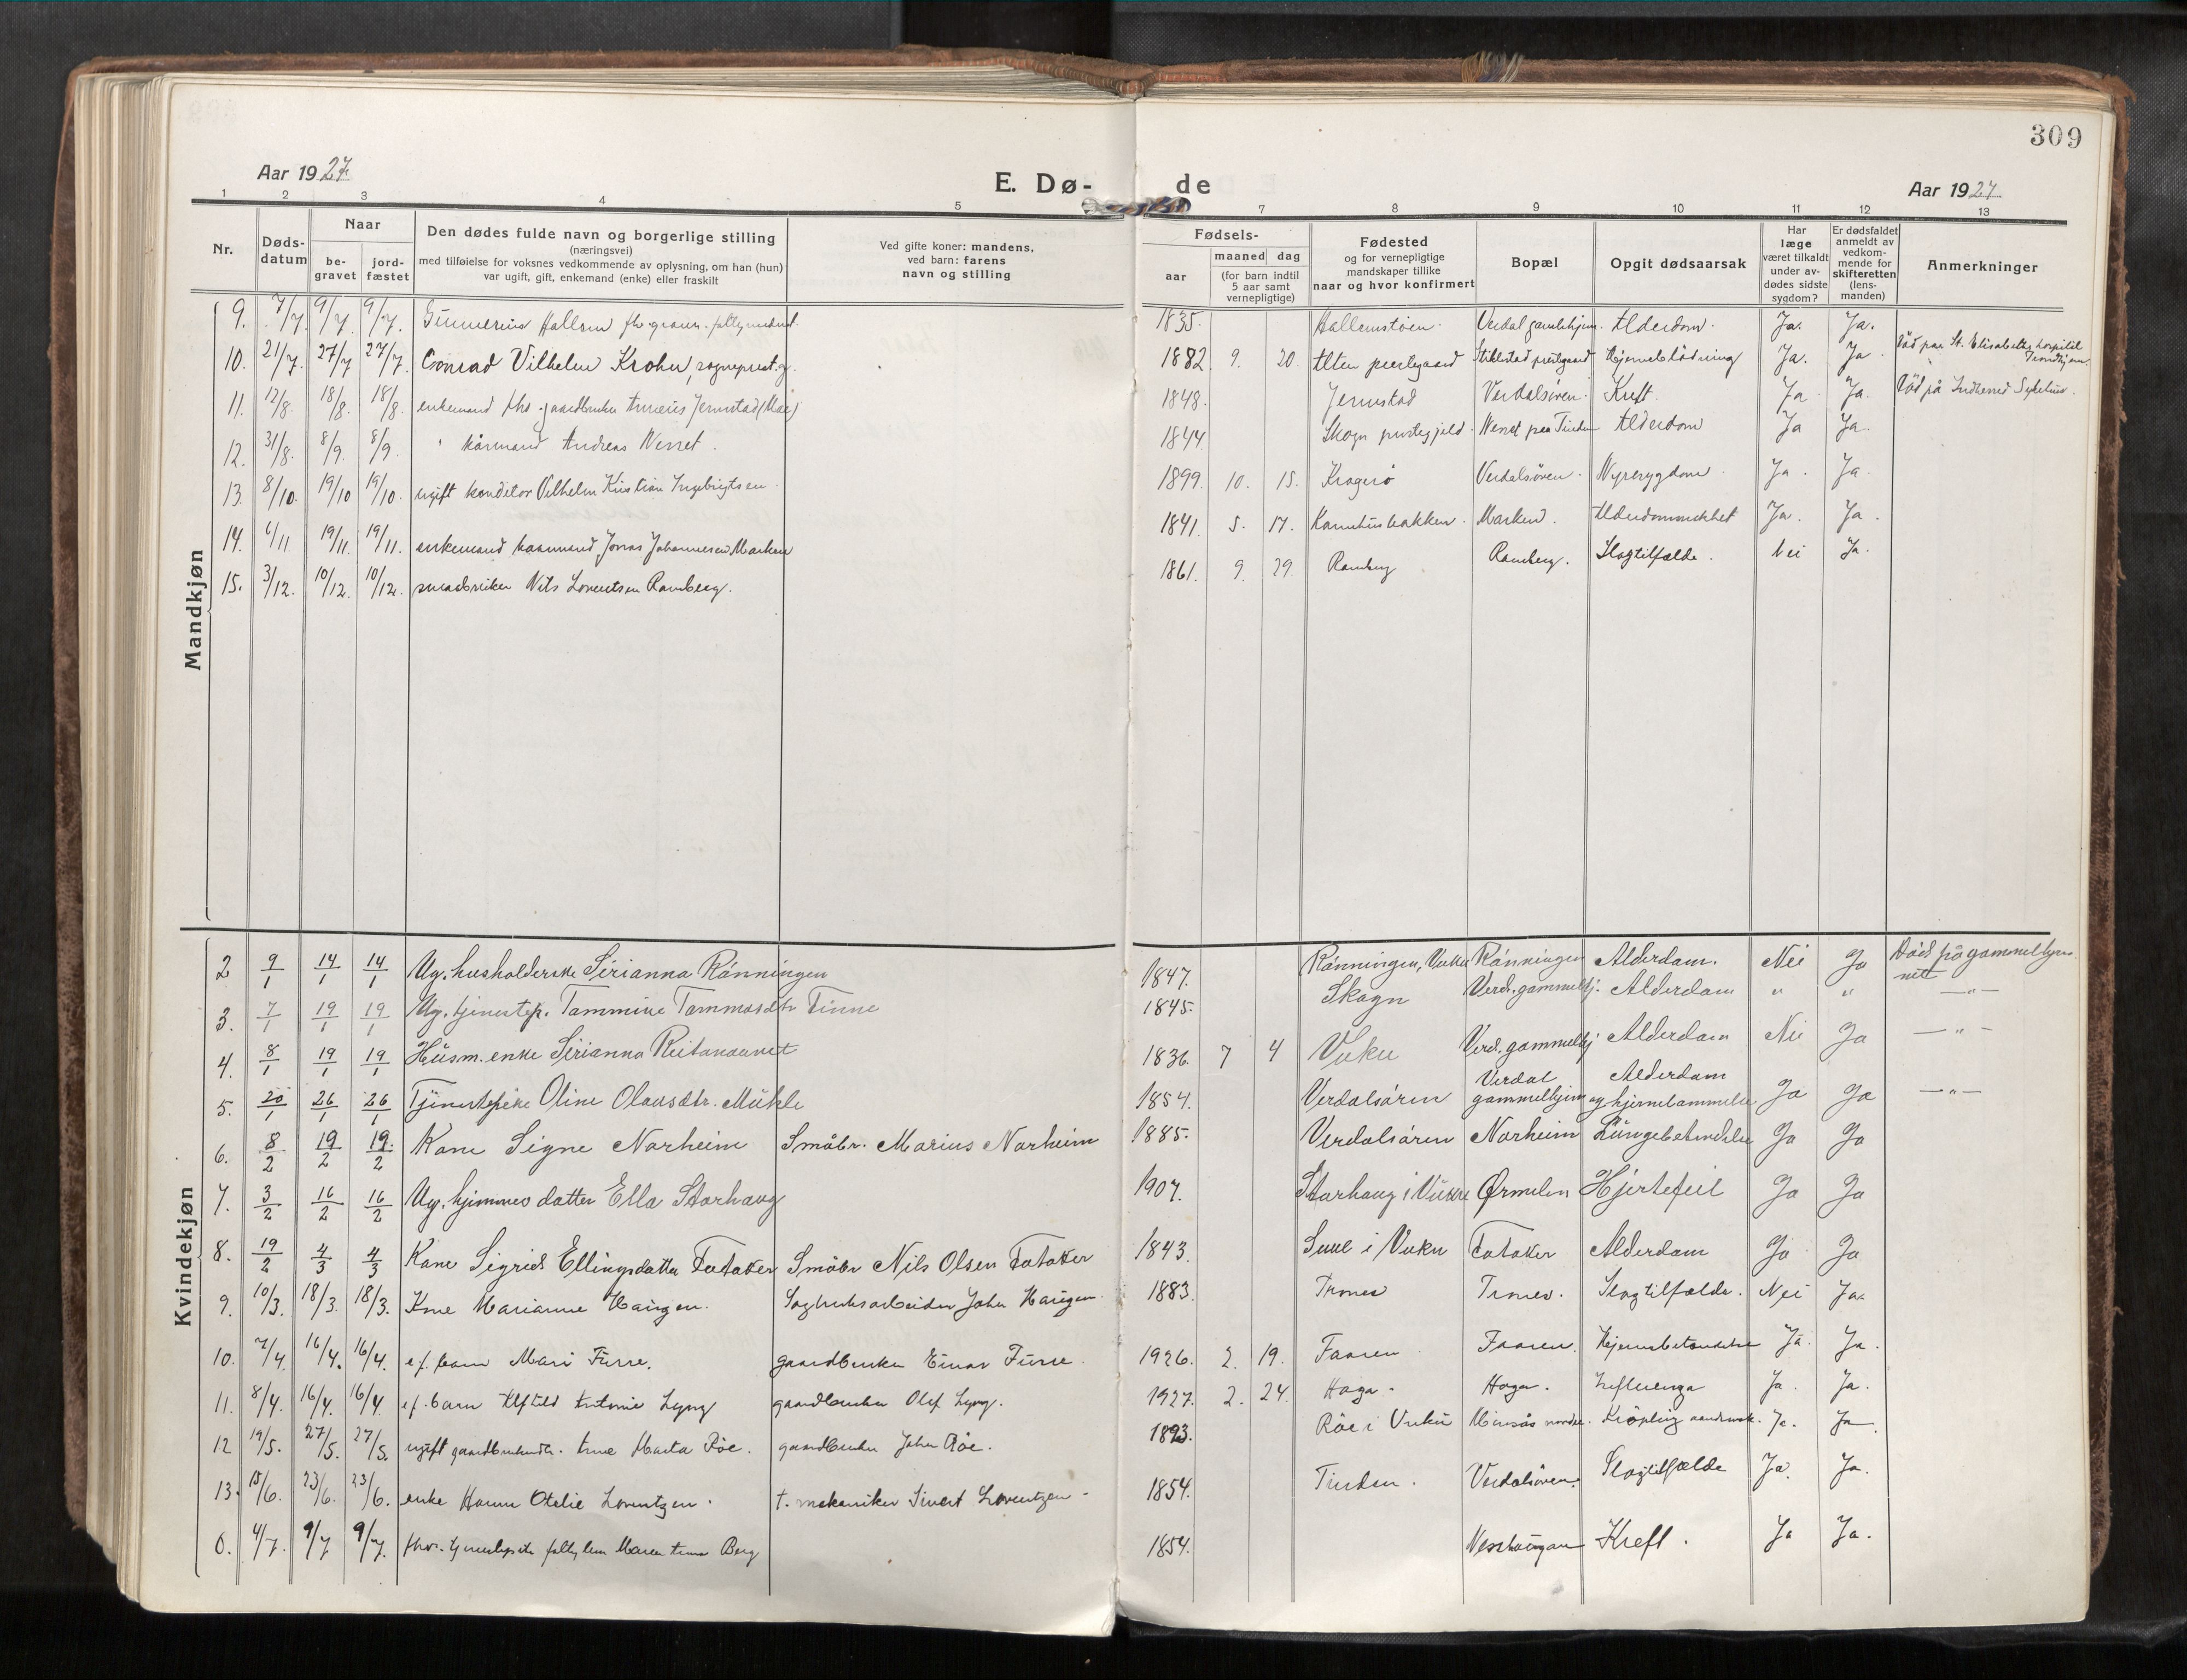 309
Aar 1927
E. Dø-
de
Aar 1927
1 2 3 4 5 7 8 9 10 11 12 13
Nr.
Døds-
datum
Naar
be-
gravet
jord-
fæstet
Den dødes fulde navn og borgerlige stilling
(næringsvei)
med tilføielse for voksnes vedkommende av oplysning, om han (hun)
var ugift, gift, enkemand (enke) eller fraskilt
Ved gifte koner: mandens,
ved barn: farens
navn og stilling
Fødsels-
aar
maaned dag
(for barn indtil
5 aar samt
vernepligtige)
Fødested
og for vernepligtige
mandskaper tillike
naar og hvor konfirmert
Bopæl
Opgit dødsaarsak
Har
læge
været tilkaldt
under av-
dødes sidste
sygdom?
Er dødsfaldet
anmeldt av
vedkom-
mende for
skifteretten
(lens-
manden)
Anmerkninger
Mandkjøn
9. 7/7. 9/7 9/7. Gunnerius Hallem 1835. Hallemstøen. Verdal gamlehjem. Alderdom. Ja. Ja.
10. 21/7. 27/7 27/7. Conrad Vilhelm Krohn, sogneprest. g. 1882. 9. 20. Alten prestegaard Stiklestad prestgaard Hjerneblödning Ja. Ja. Död paa St. Elisabeths hospital Trondhjem.
11. 12/8. 18/8. 18/8. enkemand fhv. gaardbruker Jermstad 1848. Jermstad Verdalsøren. Kreft. Ja Ja. Död på Indherred Sykehus.
12. 31/8. 8/9. 8/9. " kårmand Andreas Nesset. 1844. Skogn prestegjeld. Nesset paa Tinden Alderdom Ja Ja.
13. 8/10. 19/10 19/10. ugift konditor Vilhelm Kristian Ingebrigtsen 1899. 10. 15. Kragerö Verdalsören. Nyresygdom Ja. Ja.
14. 6/11 19/11. 19/11. enkemand kaarmand Jonas Johannesen Marken 1841. 5. 17. Marken. Ja. Ja.
15. 3/12. 10/12. 10/12. smaabruker Nils Lorentsen Ramberg. 1861. 9. 29. Ramberg Ramberg. Slagtilfælde. Nei Ja.
Kvindekjøn
2 9/1 14/1 14/1 Ug. husholderske Sirianna Rönningen 1847. Rönningen, Vuku Rönningen Alderdam. Nei Ja Död på gammelhjem-
met
3. 7/1 19/1 19/1 Ug. tjenestep. Tammine Tammasdtr Tinne 1845. Skogn Verd. gammelhj. Alderdam " " —"—
4. 8/1 19/1 19/1 Husm. enke Sirianna 1836. 7 4 Vuku Verd. gammelhj Alderdam Nei Ja —"—
5. 20/1 26/1 26/1 Tjenestepike Oline Olausdtr. Mikle 1854. Verdalsören Verdal
gammelhjem Alderdam
og hjernelammelse Ja Ja —"—
6. 8/2 19/2 19/2 Kone Signe Norheim Småbr. Marius Norheim 1885. Verdalsören Norheim Lungebetendelse Ja Ja
7. 3/2 16/2 16/2 Ug. hjemmev datter Ella Storhaug 1907. Storhaug i Vuku Ørmelen Hjertefeil Ja Ja
8. 19/2 4/3 4/3 Kone Sigrid Ellingsdatter Tataker Småbr Nils Olsen Tataker 1843. Suul i Vuku Tataker Alderdam Ja Ja
9. 10/3. 18/3. 18/3. Kone Marianne Haugen. Sagbruksarbeider Johan Haugen. 1883. Trones Trones. Slagtilfælde. Nei Ja.
10. 7/4. 16/4. 16/4. ef. barn Mari Furre. gaardbruker Einar Furre. 1926. 2. 19. Faaren Faaren. Hjernebetændelse Ja. Ja.
11. 8/4. 16/4. 16/4. ef. barn Alfhild Antonie Lyng gaardbruker Olaf Lyng. 1927. 2. 24. Haga. Haga. Influenza Ja. Ja.
12 19/5. 27/5. 27/5. ugift gaardbrukerdtr. Anne Marta Röe. gaardbruker Johan Röe. 1893. Röe i Vuku Ja. Ja
13. 15/6. 23/6. 23/6. enke Hanna Otelie Lorentzen. f. mekaniker Sivert Lorentzen. 1854. Tinden. Verdalsören. Slagtilfælde Ja. Ja.
0. 4/7. 9/7 9/7. fhv. tjenestepike Maren Anna Berg 1854. Kreft. Ja Ja.